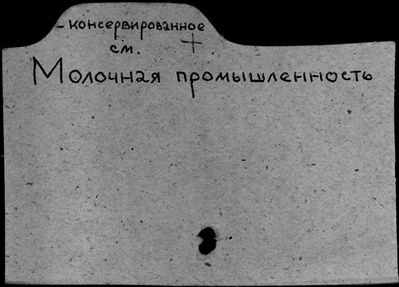 - консервированное
см. +
Молочная промышленность